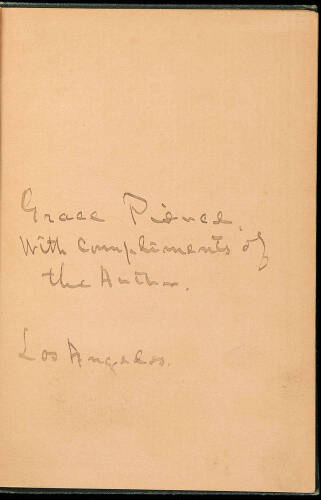 Grace Pierce,
With Compliments of
the Author.
Los Angeles.